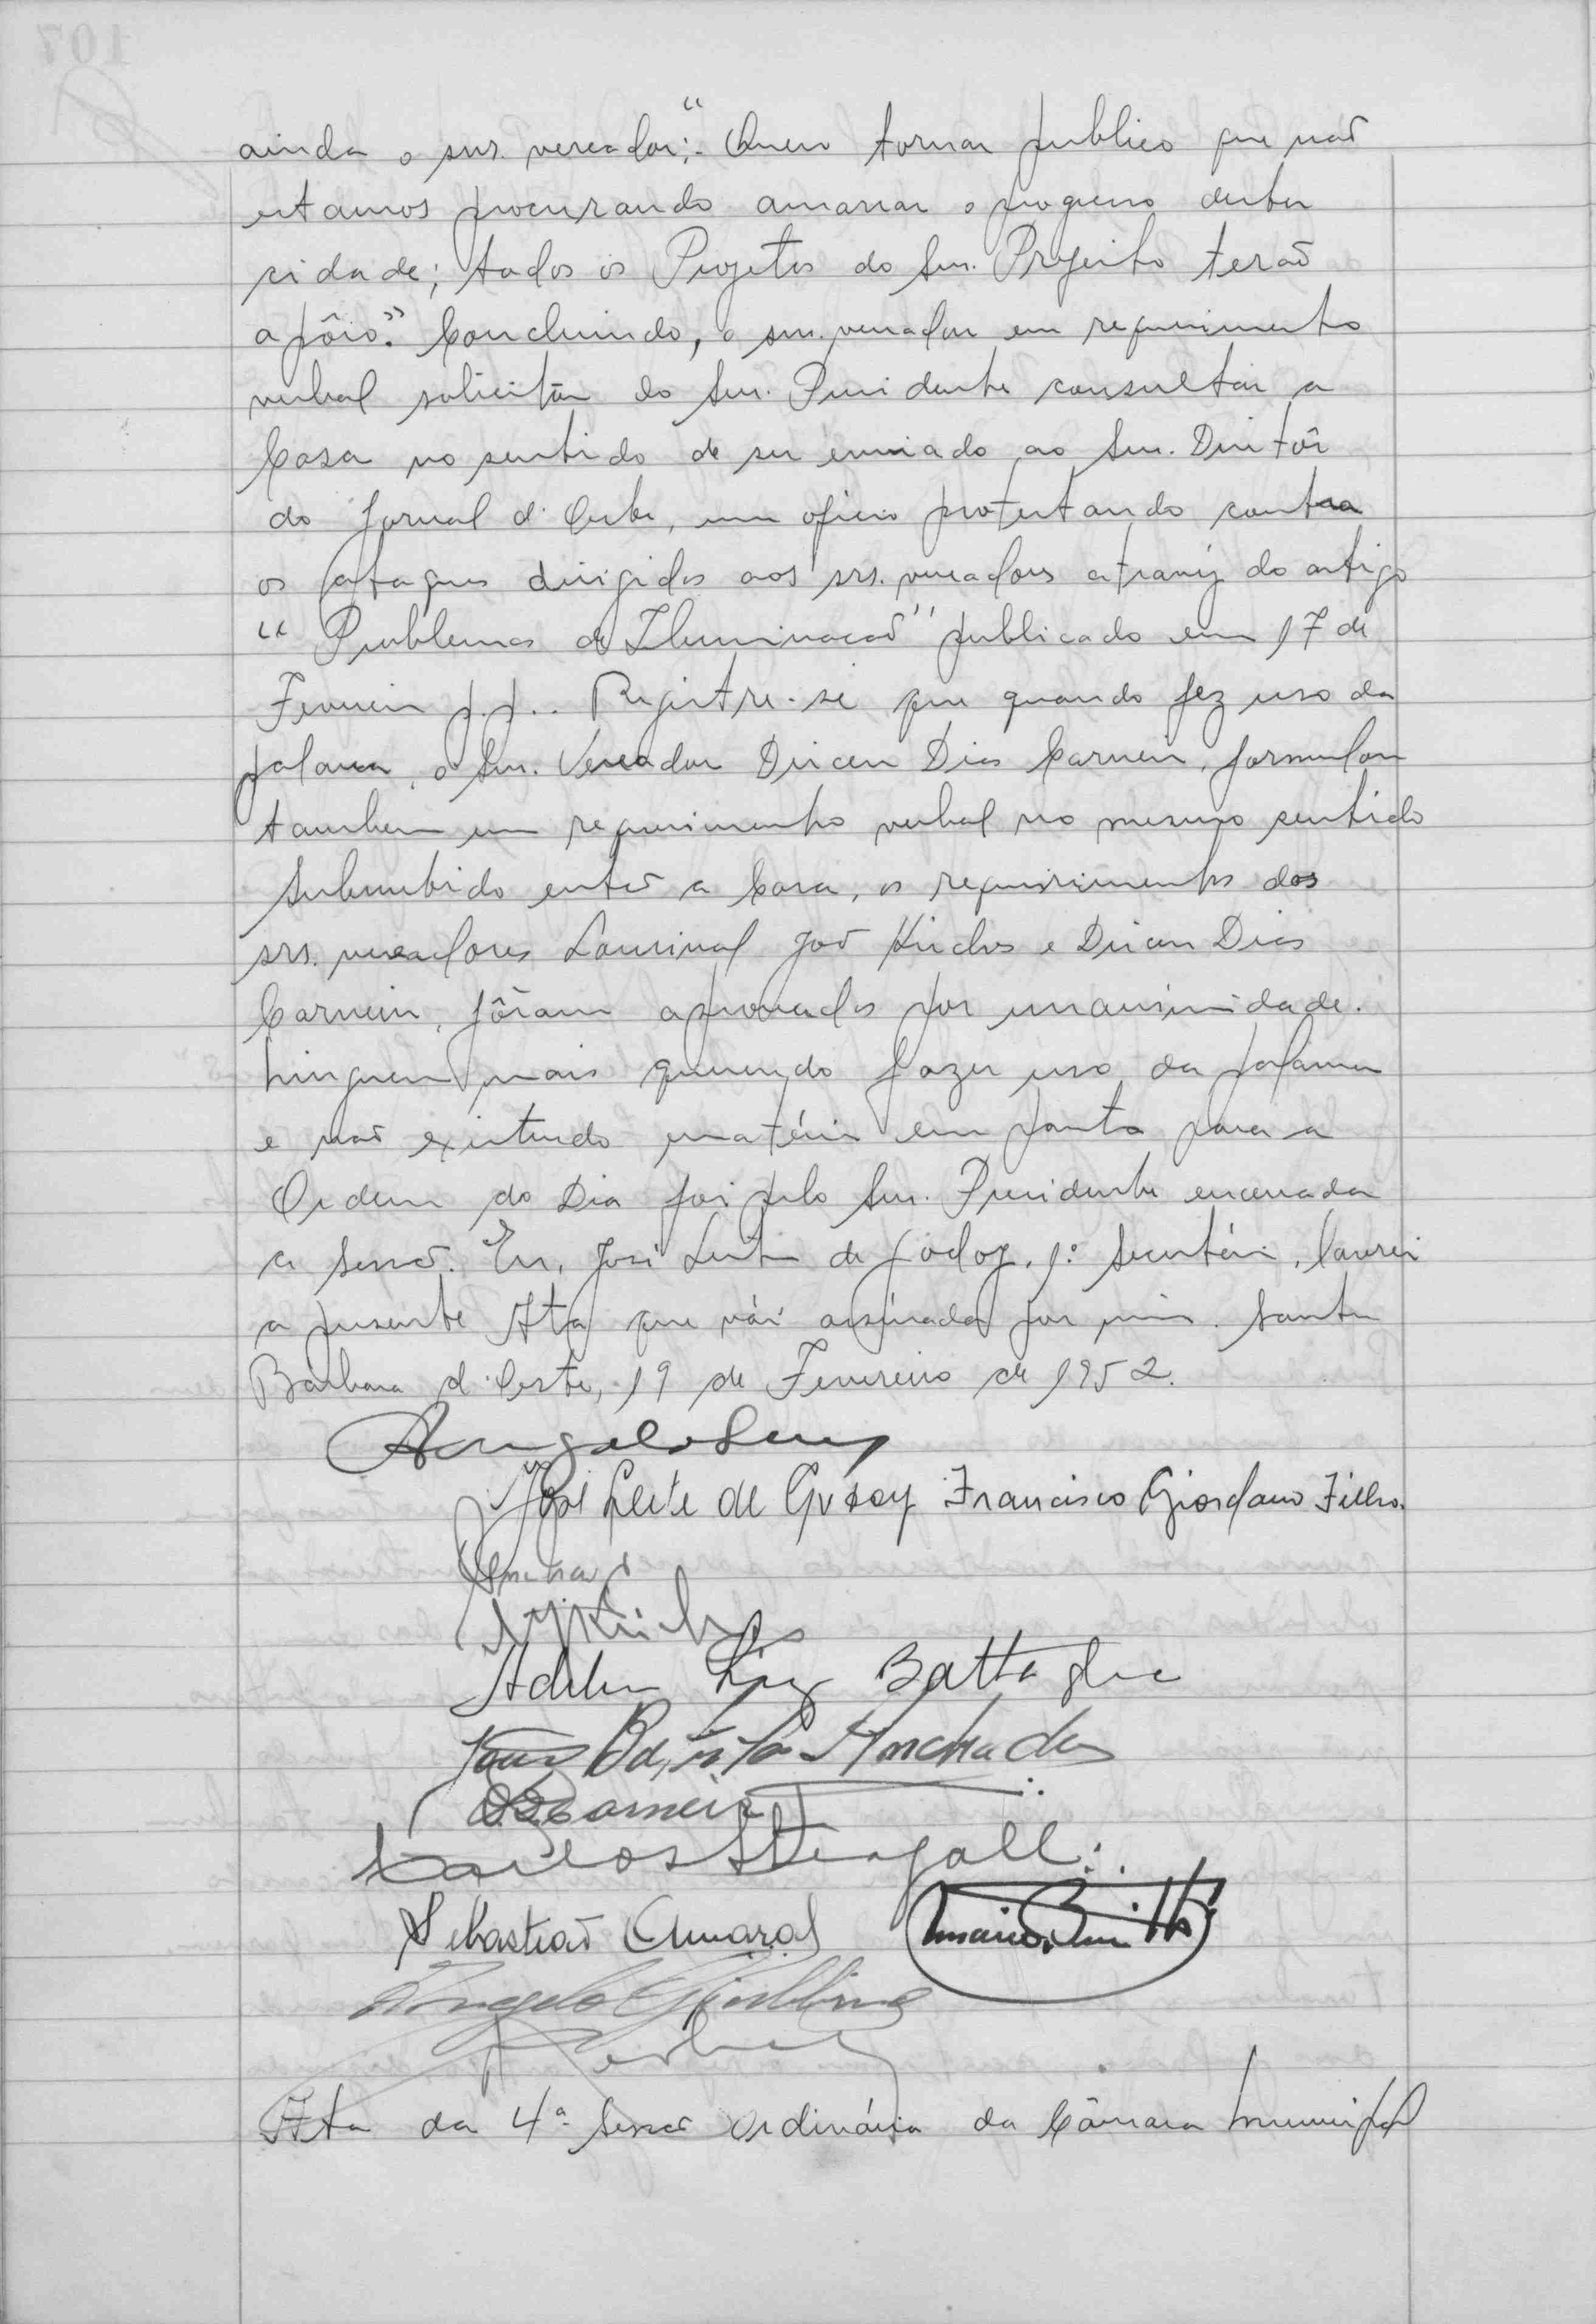 ainda o snr. vereador:- "Quero tornar publico que não
estamos procurando amarrar o progresso desta
cidade; todos os Projetos do Snr. Prefeito terão
apôio". Concluindo, o snr. vereador em requerimento
verbal solicitou do Snr. Presidente consultar a
Casa no sentido de ser enviado ao Snr. Diretôr
do Jornal d'Oeste, um oficio protestando contra
os ataques dirigidos aos srs. vereadores atravéz do artigo
"Problemas de Iluminação" publicado em 17 de
Fevereiro p.p.. Registre-se que quando fez uso da
palavra, o Snr. Vereador Dirceu Dias Carneiro, formulou
tambem um requerimento verbal no mesmo sentido
Submetido então a Casa, os requerimentos dos
srs. vereadores Lourival José Kirche e Dirceu Dias
Carneiro, fôram aprovados por unanimidade.
Ninguem mais querendo fazer uso da palavra
e não existindo matéria em pauta para a
Ordem do Dia foi pelo Snr. Presidente encerrada
a Sessão. Eu, José Leite de Godoy, 1º Secretário, lavrei
a presente Ata que vái assinada por mim. Santa
Barbara d'Oeste, 19 de Fevereiro de 1952.
José Leite de Godoy Francisco Giordano Filho.
Battaglia
João Batista Machado
DDCarneiro
Carlos Steagall
Sebastião Amaral
Angelo Giubbina
Ata da 4ª Sessão Ordinária da Câmara Municipal
107